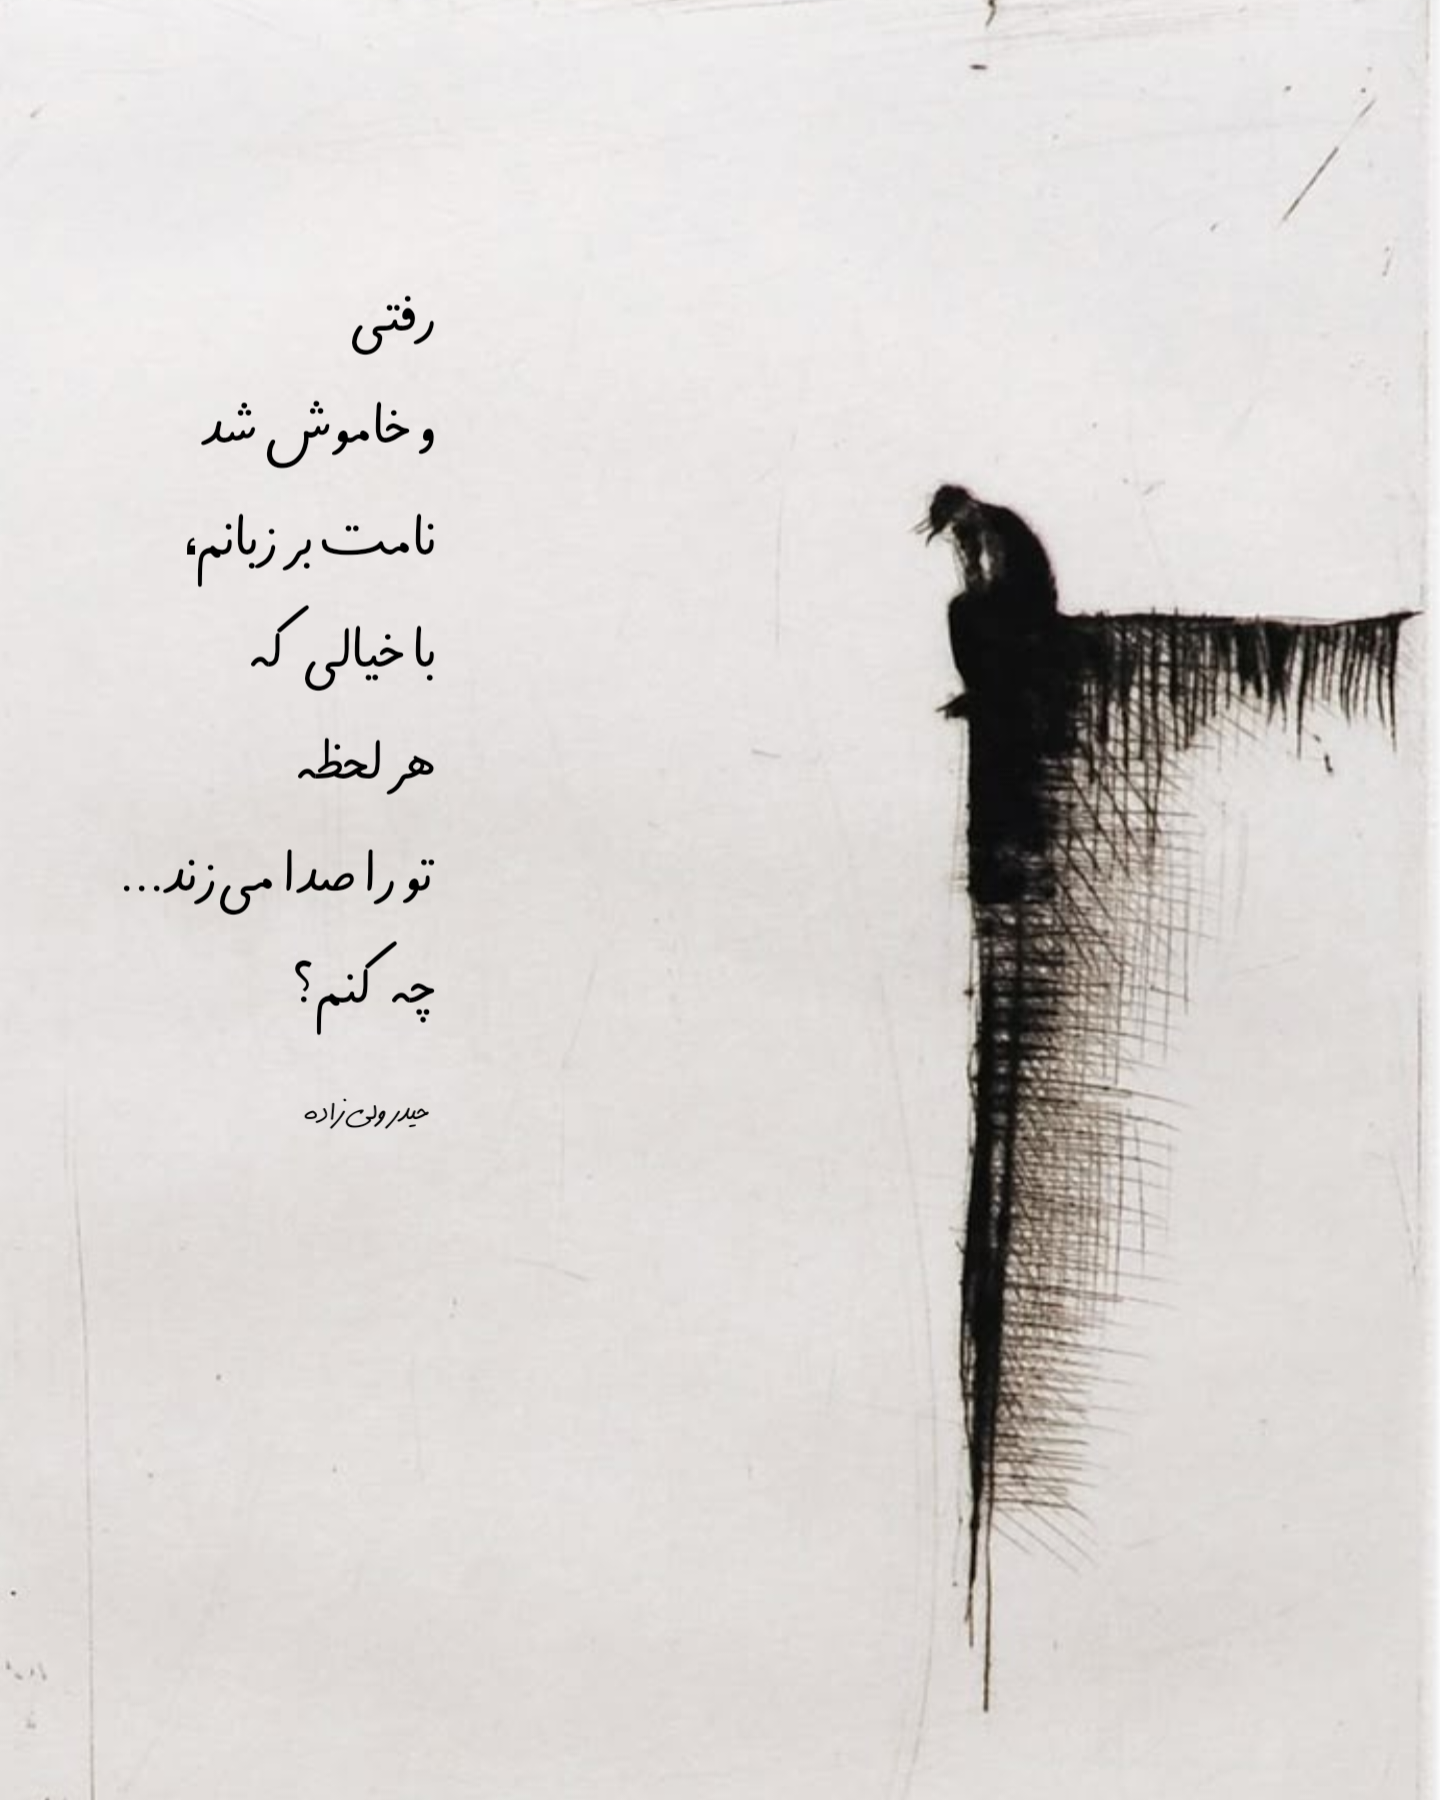 رفتی
و خاموش شد
نامت بر زبانم،
با خیالی که
هر لحظه
تو را صدا می‌زند...
چه کنم؟
حیدر ولی‌زاده